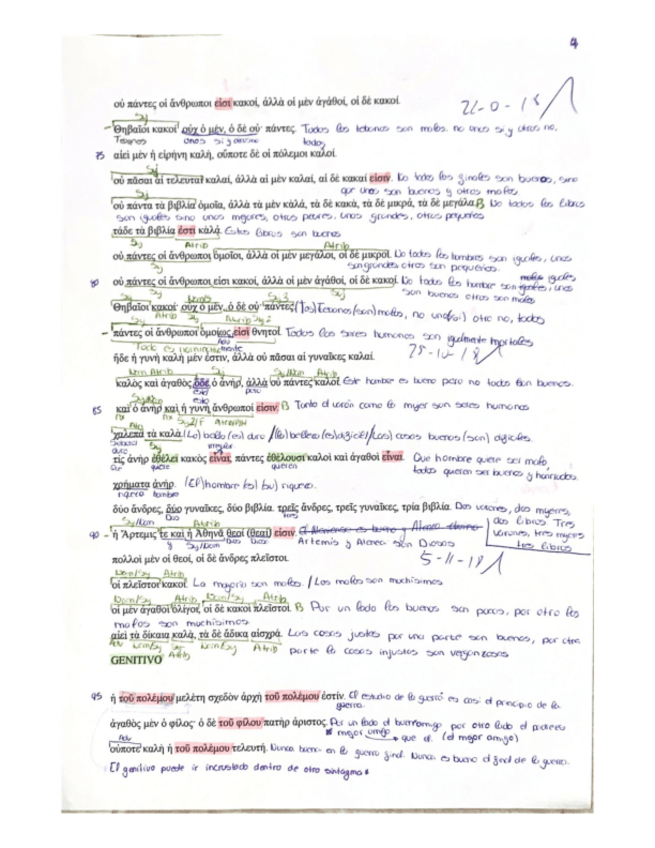 4
οὐ πάντες οἱ ἄνθρωποι εἰσι κακοί, ἀλλὰ οἱ μὲν ἀγαθοί, οἱ δὲ κακοί.
Sy
- Θηβαῖοι κακοί· οὐχ ὁ μέν, ὁ δὲ οὔ· πάντες. Todos los tebanos son malos. no unos si y otros no,
Tebanos unos si y otro no todos
75 αἰεὶ μὲν ἡ εἰρήνη καλή, οὔποτε δὲ οἱ πόλεμοι καλοί.
Sy
οὐ πᾶσαι αἱ τελευταὶ καλαί, ἀλλὰ αἱ μὲν καλαί, αἱ δὲ κακαί εἰσιν. No todos los finales son buenos, sino
que unos son buenos y otros malos.
οὐ πάντα τὰ βιβλία ὁμοῖα, ἀλλὰ τὰ μὲν καλά, τὰ δὲ κακά, τὰ δὲ μικρά, τὰ δὲ μεγάλα. B No todos los libros
son iguales sino unos mejores, otros peores, unos grandes, otros pequeños
τάδε τὰ βιβλία ἐστὶ καλά. Estos libros son buenos
Sy Atrib Atrib
οὐ πάντες οἱ ἄνθρωποι ὁμοῖοι, ἀλλὰ οἱ μὲν μεγάλοι, οἱ δὲ μικροί. No todos los hombres son iguales, unos
Sy son grandes otros son pequeños.
80 οὐ πάντες οἱ ἄνθρωποι εἰσι κακοί, ἀλλὰ οἱ μὲν ἀγαθοί, οἱ δὲ κακοί. No todos los hombre son iguales, unos
son buenos otros son malos
Θηβαῖοι κακοί· οὐχ ὁ μέν, ὁ δὲ οὔ· πάντες. (Los) Tebanos (son) malos, no uno (si) otro no, todos
Sy Atrib
- πάντες οἱ ἄνθρωποι ὁμοίως εἰσὶ θνητοί. Todos los seres humanos son igualmente mortales
Adv
ἥδε ἡ γυνὴ καλὴ μέν ἐστιν, ἀλλὰ οὐ πᾶσαι αἱ γυναῖκες καλαί.
Nom Atrib Sy Sy/Nom Atrib
καλὸς καὶ ἀγαθὸς ὅδε ὁ ἀνήρ, ἀλλὰ οὐ πάντες καλοί. Este hombre es bueno pero no todos son buenos.
85 καὶ ὁ ἀνὴρ καὶ ἡ γυνὴ ἄνθρωποί εἰσιν. B Tanto el varón como la mujer son seres humanos
χαλεπὰ τὰ καλά. (Lo) bello (es) duro / (la) belleza (es) dificil / (Las) cosas buenas (son) dificiles.
τίς ἀνὴρ ἐθέλει κακὸς εἶναι; πάντες ἐθέλουσι καλοὶ καὶ ἀγαθοὶ εἶναι. Que hombre quiere ser malo,
quiere quieren todos quieren ser buenos y honrados.
χρήματα ἀνήρ. (El) hombre (es) (su) riqueza.
riqueza hombre
δύο ἄνδρες, δύο γυναῖκες, δύο βιβλία. τρεῖς ἄνδρες, τρεῖς γυναῖκες, τρία βιβλία. Dos varones, dos mujeres,
dos libros. Tres
90 - ἡ Ἄρτεμις τε καὶ ἡ Ἀθηνᾶ θεοί (θεαί) εἰσιν. varones, tres mujeres
Artemis y Atenea son Diosas tres libros
πολλοὶ μὲν οἱ θεοί, οἱ δὲ ἄνδρες πλεῖστοι. 5-11-18
Nom/Sy Atrib
οἱ πλεῖστοι κακοί. La mayoria son malos. / Los malos son muchísimos
Nom/Sy Atrib Nom/Sy Atrib
οἱ μὲν ἀγαθοὶ ὀλίγοι, οἱ δὲ κακοὶ πλεῖστοι. B Por un lado los buenos son pocos, por otro los
malos son muchísimos.
αἰεὶ τὰ δίκαια καλά, τὰ δὲ ἄδικα αἰσχρά. Las cosas justas por una parte son buenas, por otra
Adv Nom/Sy Atrib Nom/Sy Atrib parte la cosas injustas son vergonzosas
GENITIVO
95 ἡ τοῦ πολέμου μελέτη σχεδὸν ἀρχὴ τοῦ πολέμου ἐστίν. El estudio de la guerra es casi el principio de la
guerra.
ἀγαθὸς μὲν ὁ φίλος· ὁ δὲ τοῦ φίλου πατὴρ ἄριστος. Por un lado el buen amigo por otro lado el padre
* mejor amigo que el. (el mejor amigo)
Adv
οὔποτε καλὴ ἡ τοῦ πολέμου τελευτή. Nunca buena en la guerra final. Nunca es bueno el final de la guerra.
El genitivo puede ir incrustado dentro de otro sintagma *